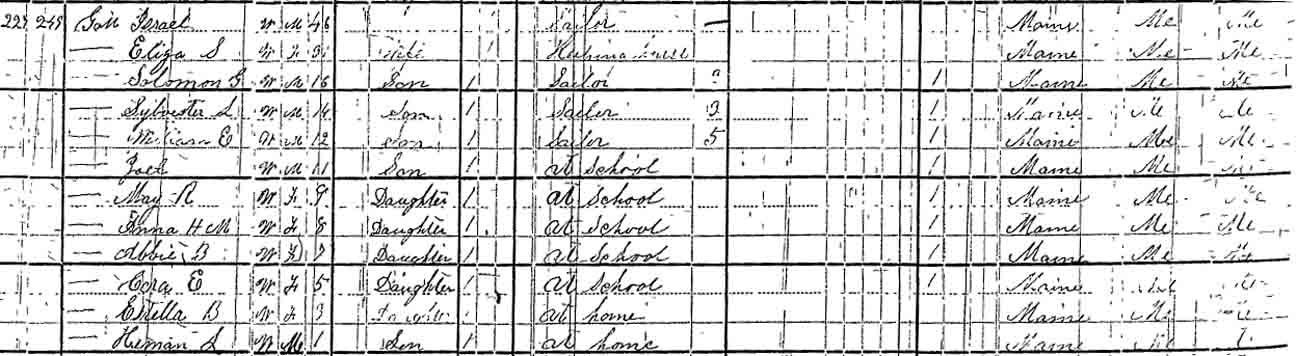 229 249 Gott Israel W M 46 Sailor Maine Me Me
— Eliza S W F Wife Maine Me Me
— Solomon G W M 16 Son 1 Sailor 1 Maine Me Me
— Sylvester L W M 14 Son 1 Sailor 3 1 Maine Me Me
— William E W M 12 Son 1 Sailor 5 1 Maine Me Me
— W M 11 Son 1 at School 1 Maine Me
— May R W F 9 Daughter 1 at School 1 Maine Me Me
— Anna H M W F 8 Daughter 1 at School 1 Maine Me Me
— Abbie B W F 7 Daughter 1 at School 1 Maine Me Me
— Cora E W F 5 Daughter 1 at School 1 Maine
— Estella B W F 3 Daughter at home Maine Me
— Heman L W M 1 Son at home Maine